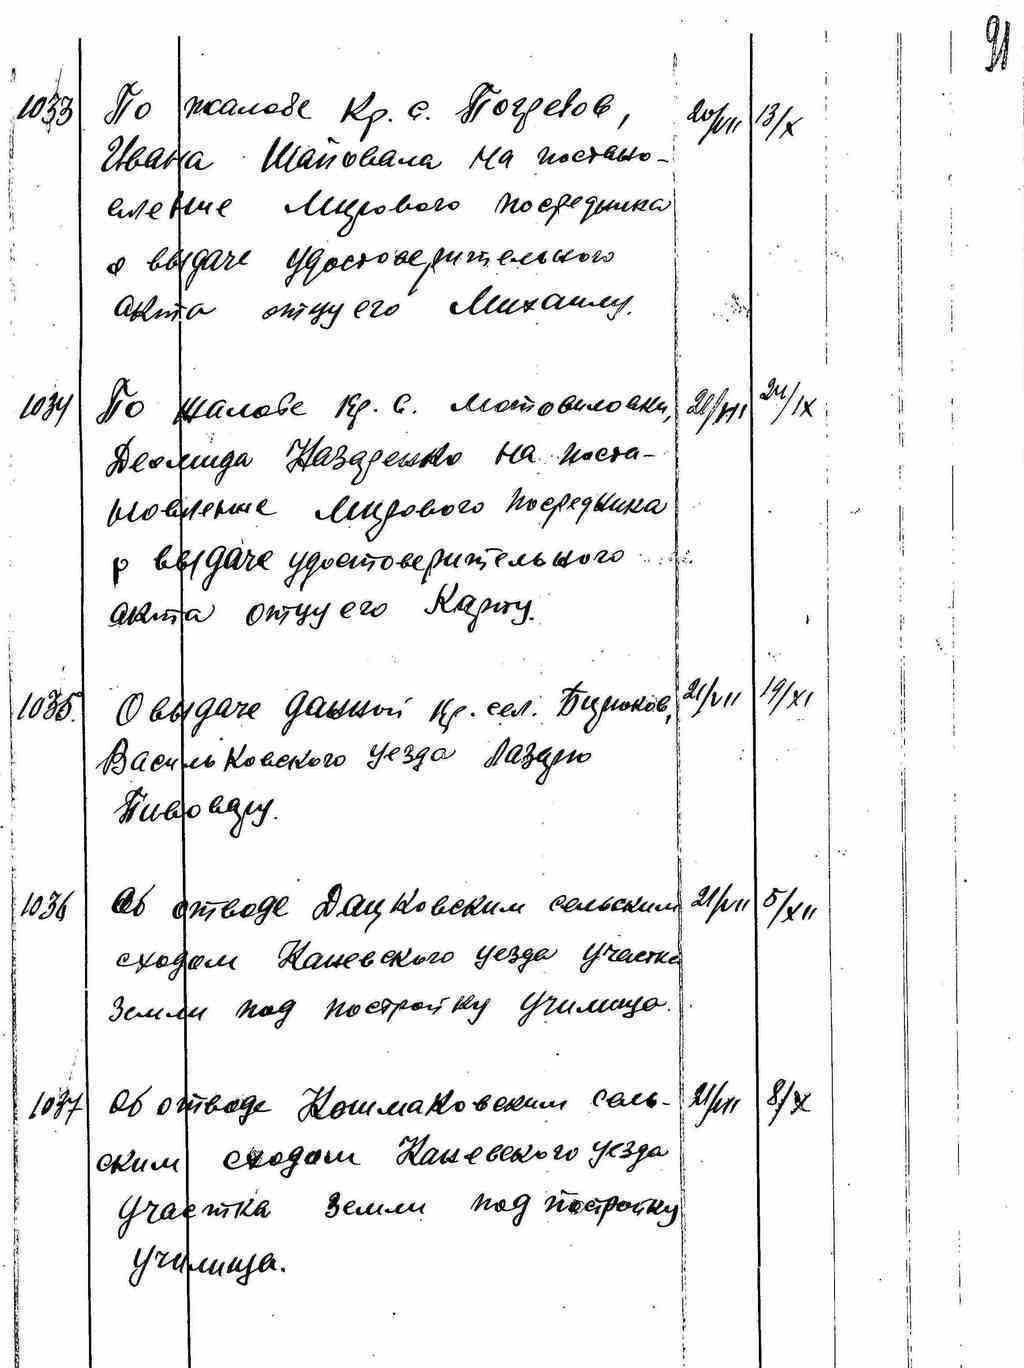 91
1033 По жалобе Кр. с. Погребов, 20/VII 13/X
Ивана Шаповала на постано-
вление Мирового посредника
о выдаче удостоверительного
акта отцу его Михаилу.
1034 По жалобе Кр. с. Мотовиловки, 21/VII 24/IX
Деомида Назаренко на поста-
новление Мирового посредника
о выдаче удостоверительного
акта отцу его Карпу.
1035. О выдаче данной кр. сел. Бирюков, 21/VII 19/XI
Васильковского уезда Лазарю
Пивовару.
1036 Об отводе Дацковским сельским 21/VII 5/XII
сходом Каневского уезда участка
земли под постройку училища.
1037 Об отводе Кошмаковским сель- 21/VII 8/X
ским сходом Каневского уезда
участка земли под постройку
училища.